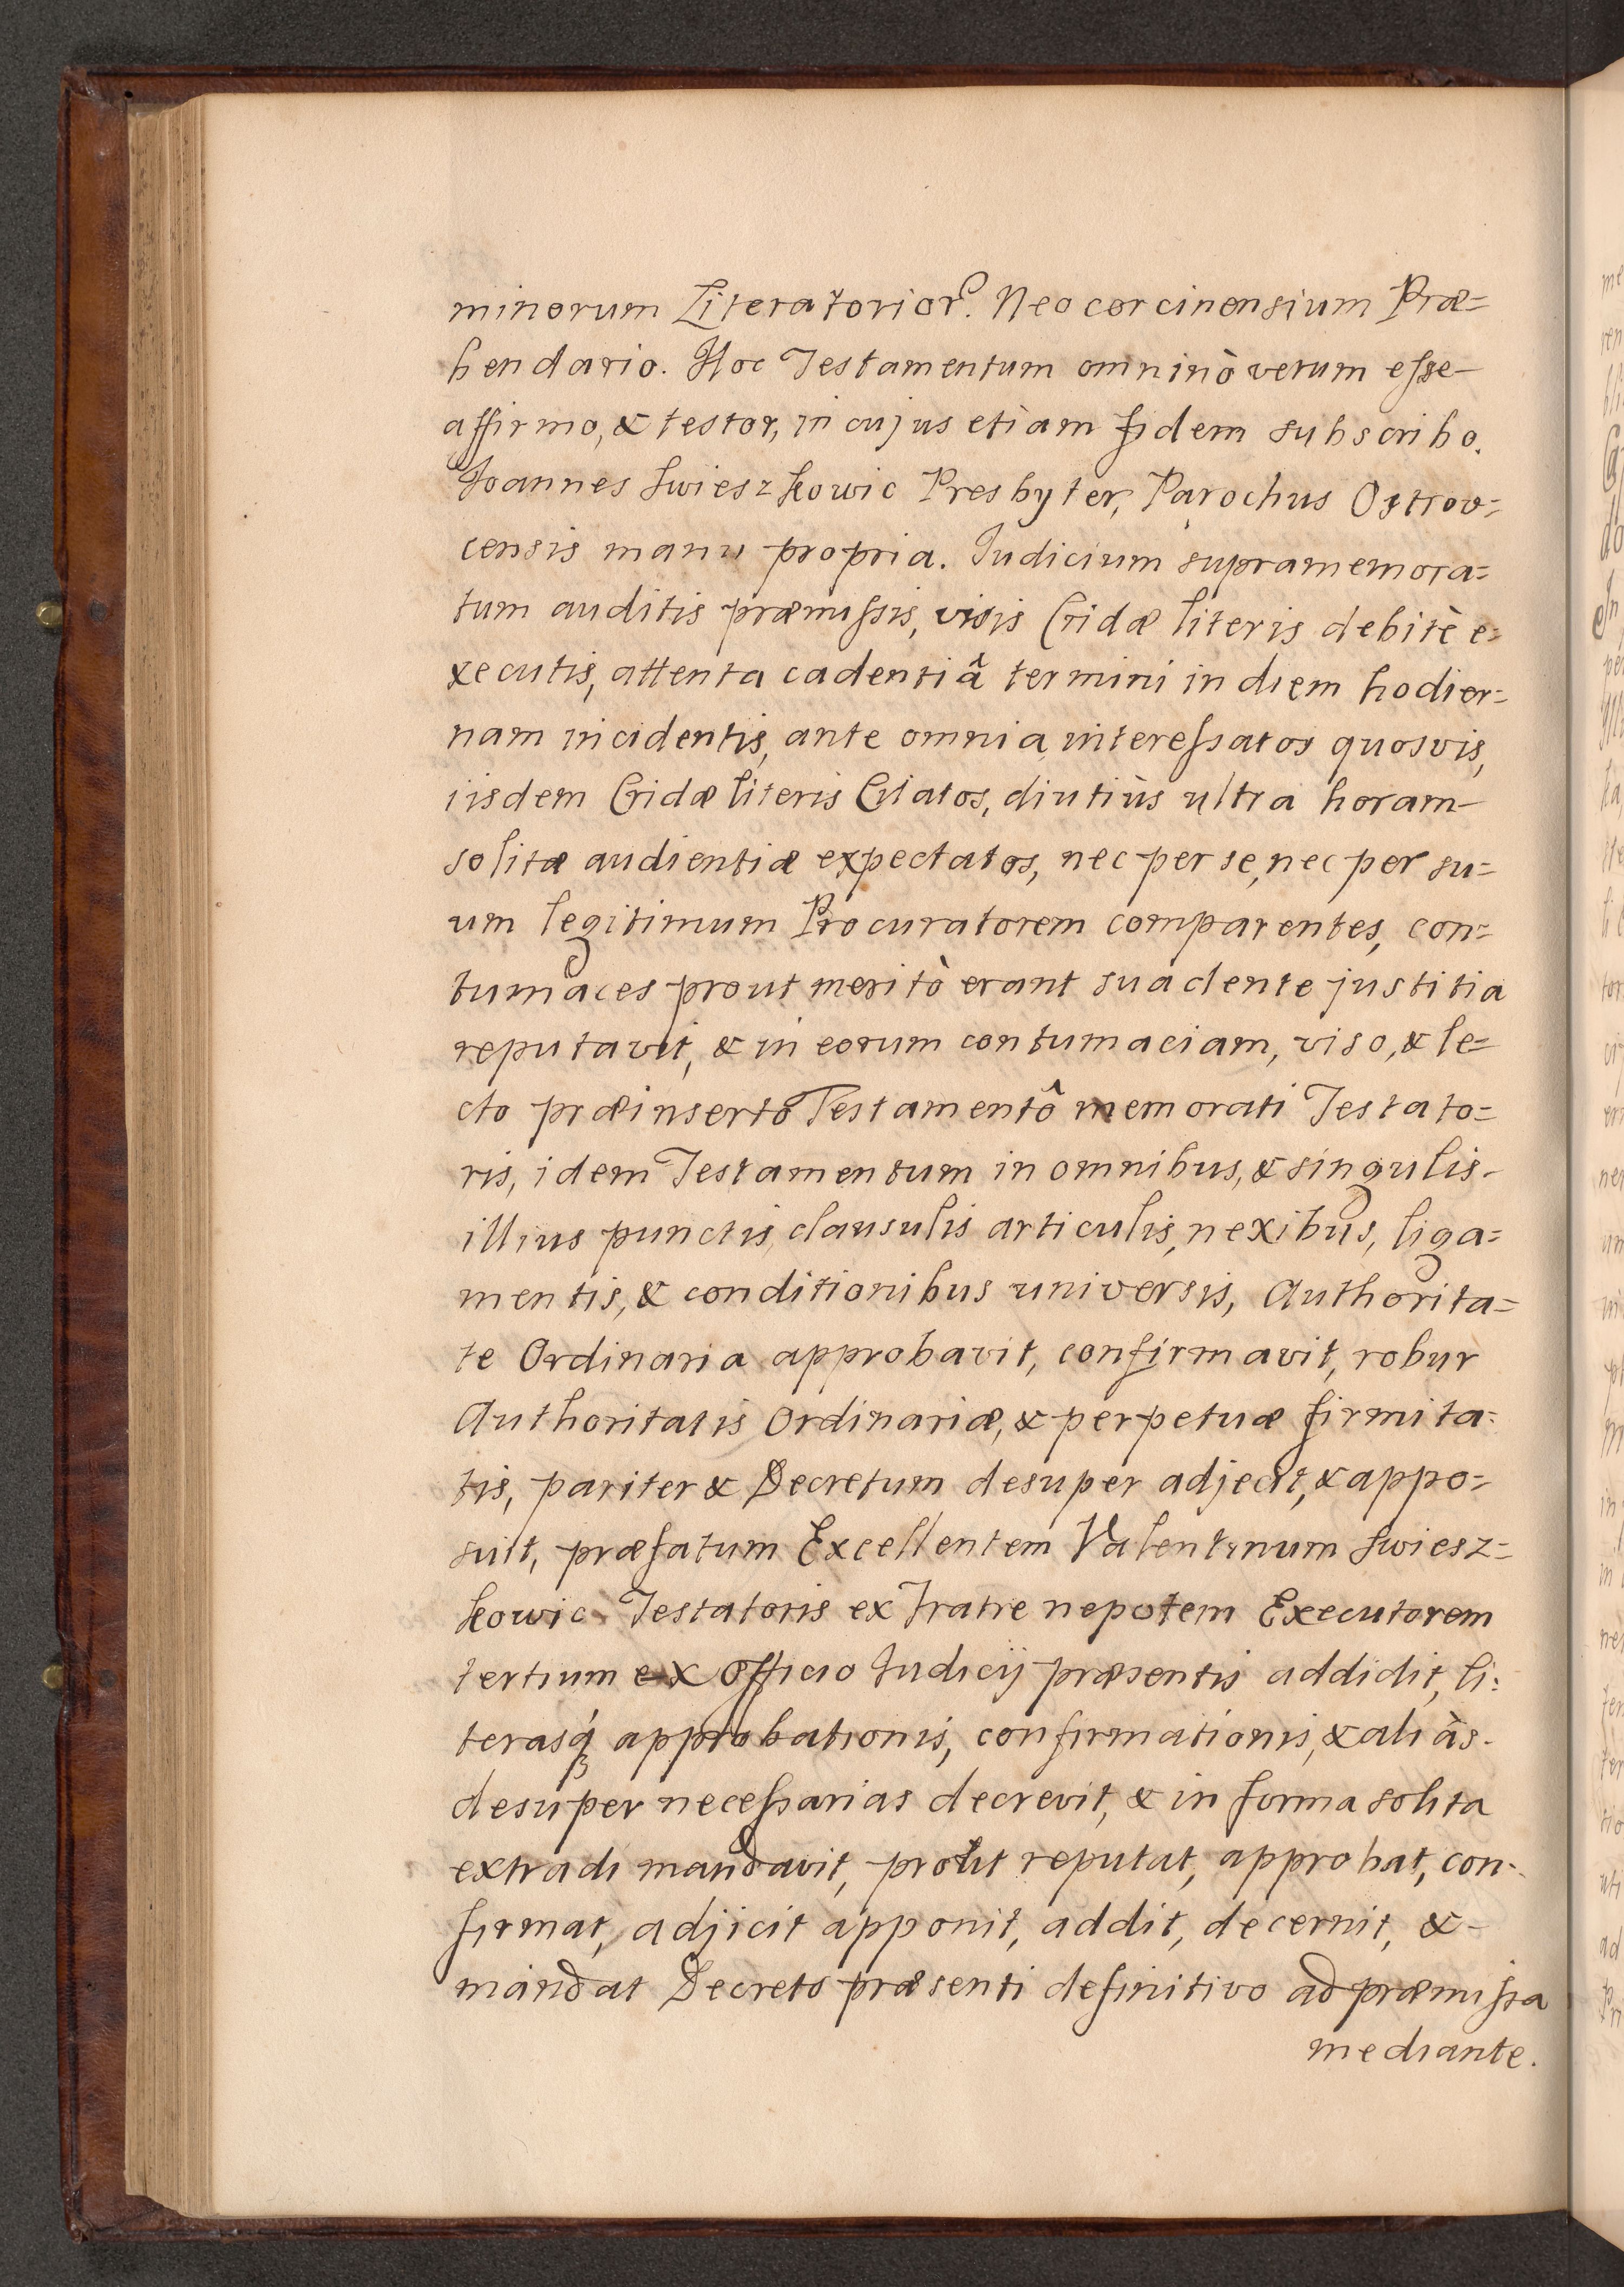 minorum Literatorior. Neocorcinensium Præ=
bendario. Hoc Testamentum omninò verum esse
affirmo, & testor, in cujus etiam fidem subscribo.
Joannes Swieszkowic Presbyter, Parochus Ostrov=
censis manu propria. Judicium supramemora=
tum auditis præmissis, visis Cridæ literis debitè e=
xecutis, attenta cadentiâ termini in diem hodier=
nam incidentis, ante omnia interessatos quosvis,
iisdem Cridæ literis Citatos, diutiùs ultra horam
solitæ audientiæ expectatos, nec per se, nec per su=
um legitimum Procuratorem comparentes, con=
tumaces prout meritò erant suadente justitia
reputavit, & in eorum contumaciam, viso, & le=
cto præinserto Testamentô memorati Testato=
ris, idem Testamentum in omnibus, & singulis
illius punctis, clausulis articulis, nexibus, liga=
mentis, & conditionibus universis, Authorita=
te Ordinaria approbavit, confirmavit, robur
Authoritatis Ordinariæ, & perpetuæ firmita=
tis, pariter & Decretum desuper adjecit, & appo=
suit, præfatum Excellentem Valentinum Swiesz=
kowic Testatoris ex Fratre nepotem Executorem
tertium ex Officio Judicij præsentis addidit, li=
terasq́ approbationis, confirmationis, & aliàs
desuper necessarias decrevit, & in forma solita
extradi mandavit, prout reputat, approbat, con=
firmat, adjicit apponit, addit, decernit, &
mandat Decreto præsenti definitivo ad præmissa
mediante.